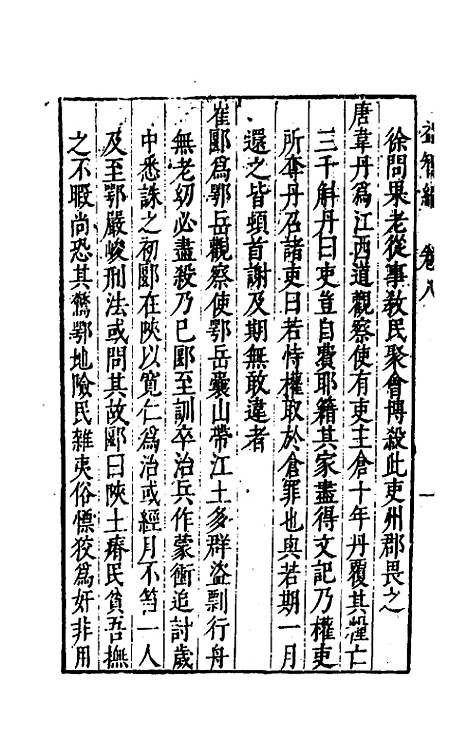 益智編　卷八　一
徐問果老從事教民聚會博殺此吏州郡畏之
唐韋丹爲江西道觀察使有吏主倉十年丹覆其糧亡
三千斛丹曰吏豈自費耶籍其家盡得文記乃權吏
所奪丹召諸吏曰若恃權取於倉罪也與若期一月
還之皆頓首謝及期無敢違者
崔郾爲鄂岳觀察使鄂岳囊山帶江土多群盜剽行舟
無老幼必盡殺乃已郾至訓卒治兵作蒙衝追討歲
中悉誅之初郾在陝以寬仁爲治或經月不笞一人
及至鄂嚴峻刑法或問其故郾曰陝土瘠民貧吾撫
之不暇尚恐其驚鄂地險民雜夷俗慓狡爲奸非用